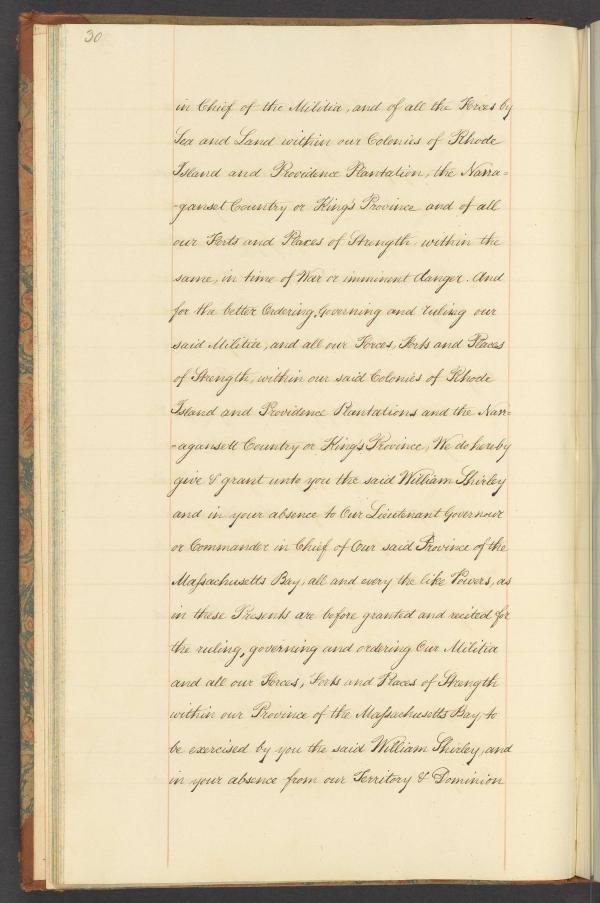 30
in Chief of the Militia, and of all the Forces by
Sea and Land within our Colonies of Rhode
Island and Providence Plantation, the Narra=
-ganset Country or King's Province and of all
our Forts and Places of Strength within the
same, in time of War or imminent danger. And
for the better Ordering, Governing and ruling our
said Militia, and all our Forces, Forts and Places
of Strength, within our said Colonies of Rhode
Island and Providence Plantations and the Narr=
-agansett Country or King's Province, We do hereby
give & grant unto you the said William Shirley
and in your absence to Our Lieutenant Governour
or Commander in Chief of Our said Province of the
Maſsachusetts Bay, all and every the like Powers, as
in these Presents are before granted and recited for
the ruling, governing and ordering Our Militia
and all our Forces, Forts and Places of Strength
within our Province of the Maſsachusetts Bay, to
be exercised by you the said William Shirley, and
in your absence from our Territory & Dominion